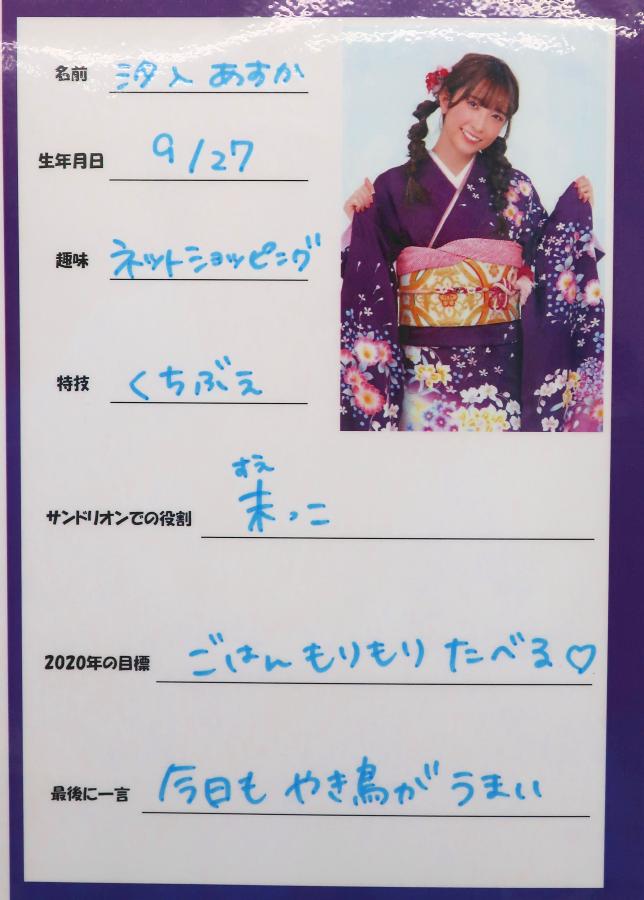 名前 汐入 あすか
生年月日 9/27
趣味 ネットショッピング
特技 くちぶえ
すえ
サンドリオンでの役割 末っこ
2020年の目標 ごはんもりもり たべる♡
最後に一言 今日も やき鳥が うまい